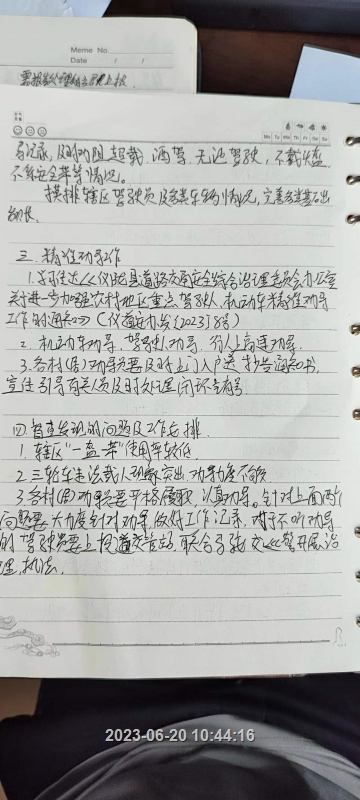 Meme No.
Date / /
Mo Tu We Th Fr Sa Su
易记录，及时劝阻超载、酒驾、无证驾驶，不戴头盔
不系安全带等情况。
摸排辖区驾驶员及各类车辆情况，完善各类基础台
三、精准劝导工作
1、下发《仪陇县道路交通安全综合治理委员会办公室
关于进一步加强农村地区重点驾驶人、机动车精准劝导
工作的通知》（仪道安办发〔2023〕8号）
2、机动车劝导、驾驶人劝导、
3、各村(居)劝导员要及时上门入户送抄告通知书，
宣传引导有关人员及时处理闭环
四、督查发现的问题及工作安排
1、辖区“一盔一带”使用率较低
2、三轮车违法载人现象突出，劝导力度不够
3、各村(居)劝导员要严格履职，认真劝导。针对上面两个
问题要大力度针对劝导，做好工作记录，对于不听劝导
的驾驶员要上报道交管站，联合 交巡警开展治
理，执法。
2023-06-20 10:44:16